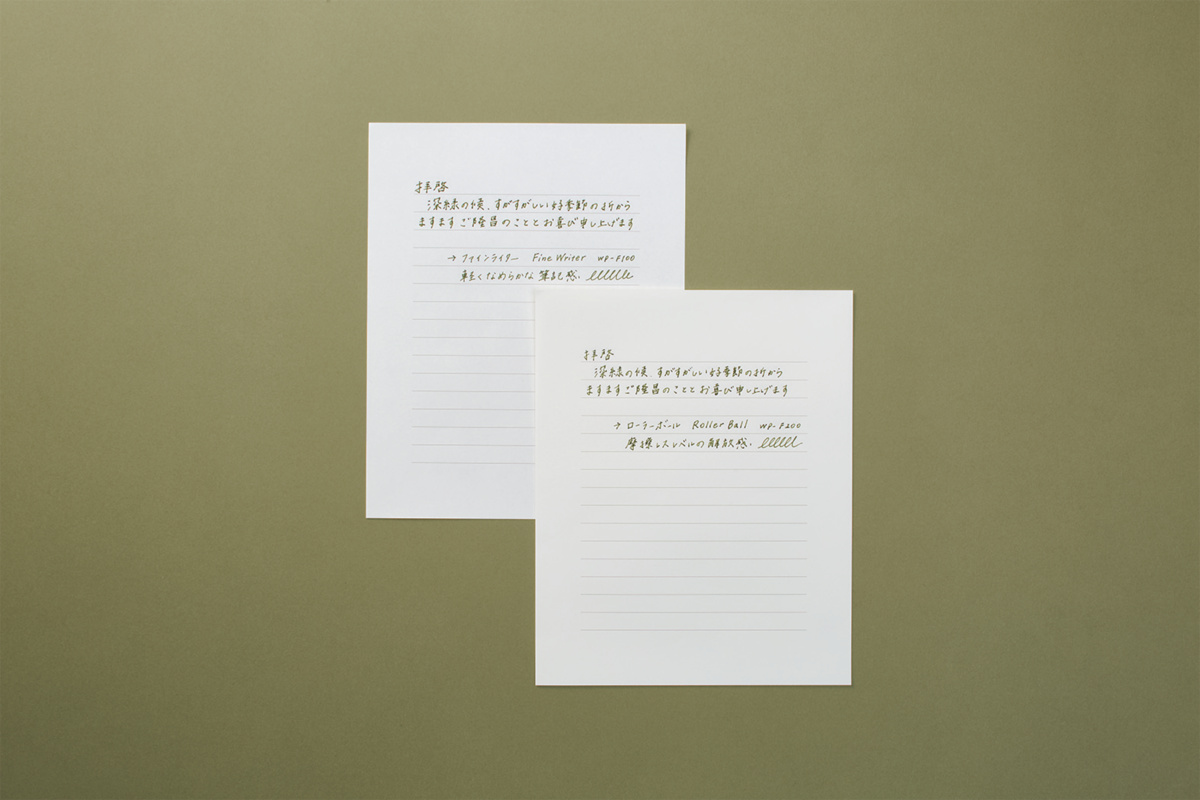 拝啓
深緑の候、すがすがしい好季節の折から
ますますご隆昌のこととお喜び申し上げます
→ ファインライター Fine Writer WP-F100
軽くなめらかな筆記感.
拝啓
深緑の候、すがすがしい好季節の折から
ますますご隆昌のこととお喜び申し上げます
→ ローラーボール Roller Ball WP-F200
摩擦レスレベルの解放感.